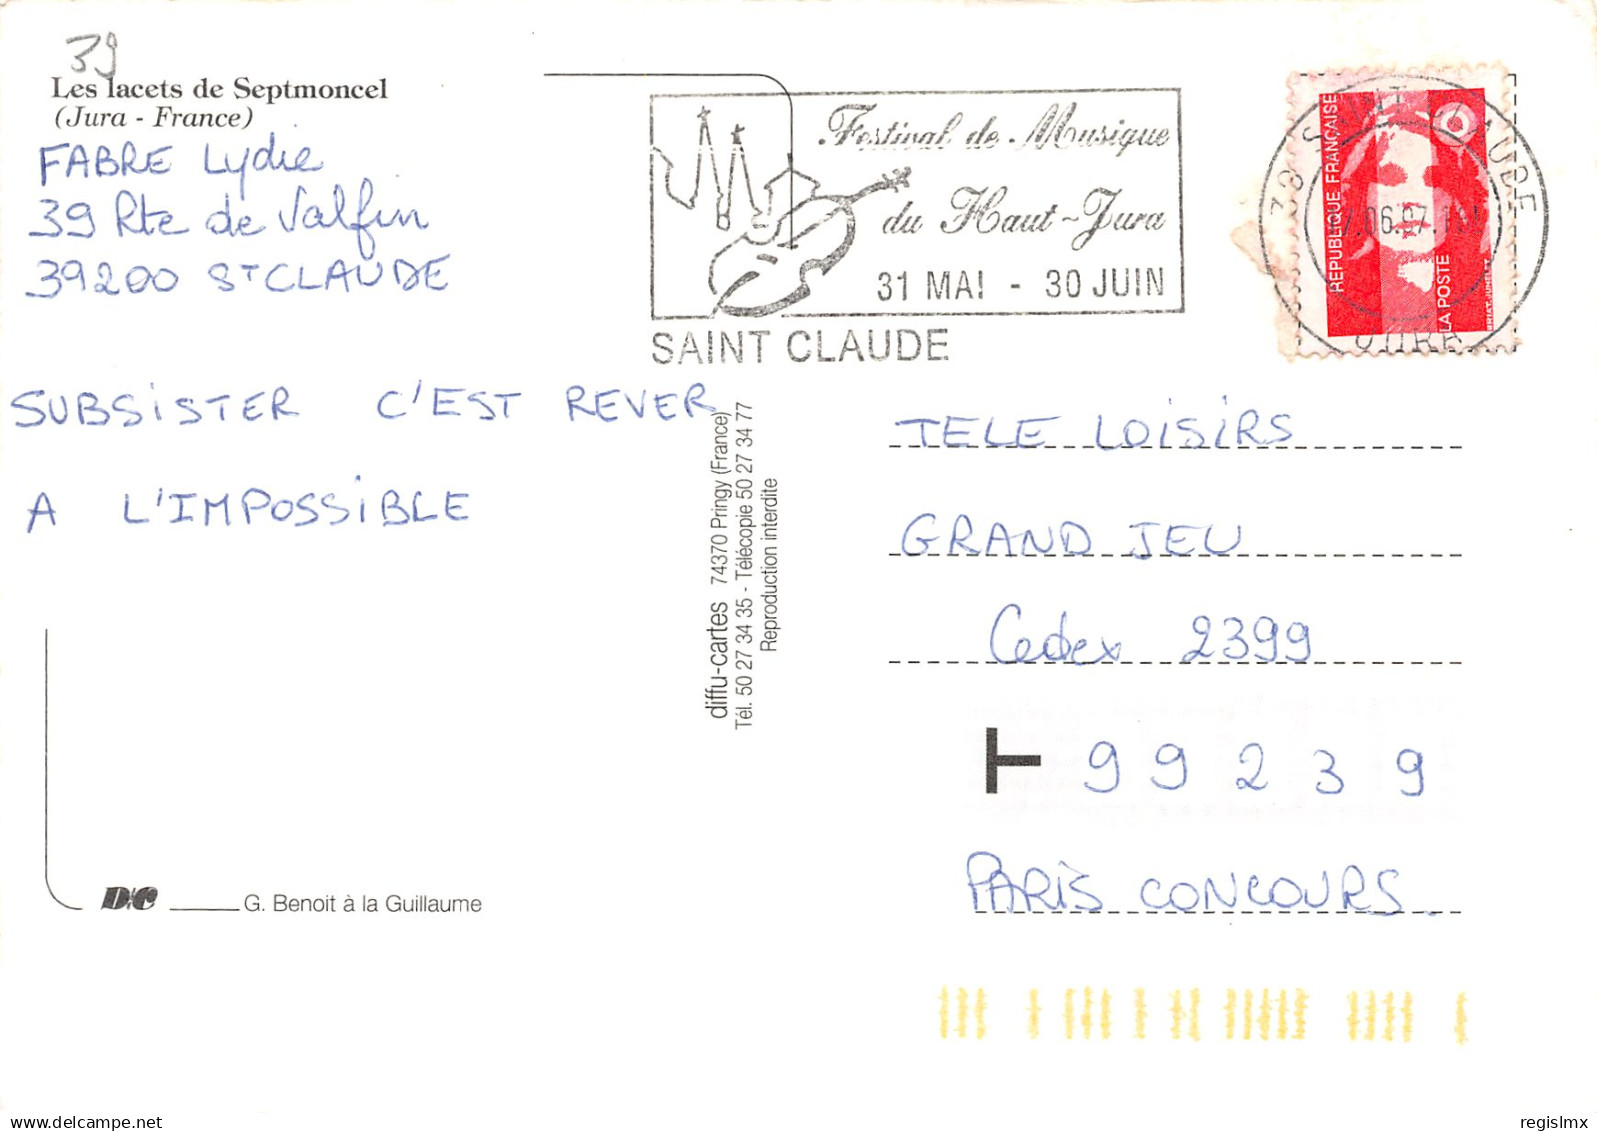 39
Les lacets de Septmoncel
(Jura - France)
FABRE Lydie
39 Rte de Valfin
39200 ST CLAUDE
Festival de Musique
du Haut-Jura
31 MAI - 30 JUIN
SAINT CLAUDE
RÉPUBLIQUE FRANÇAISE
LA POSTE
SUBSISTER C'EST REVER
A L'IMPOSSIBLE
diffu-cartes 74370 Pringy (France)
Tél. 50 27 34 35 - Télécopie 50 27 34 77
Reproduction interdite
TELE LOISIRS
GRAND JEU
Cedex 2399
T 99239
PARIS CONCOURS.
D&C G. Benoit à la Guillaume
regislmx